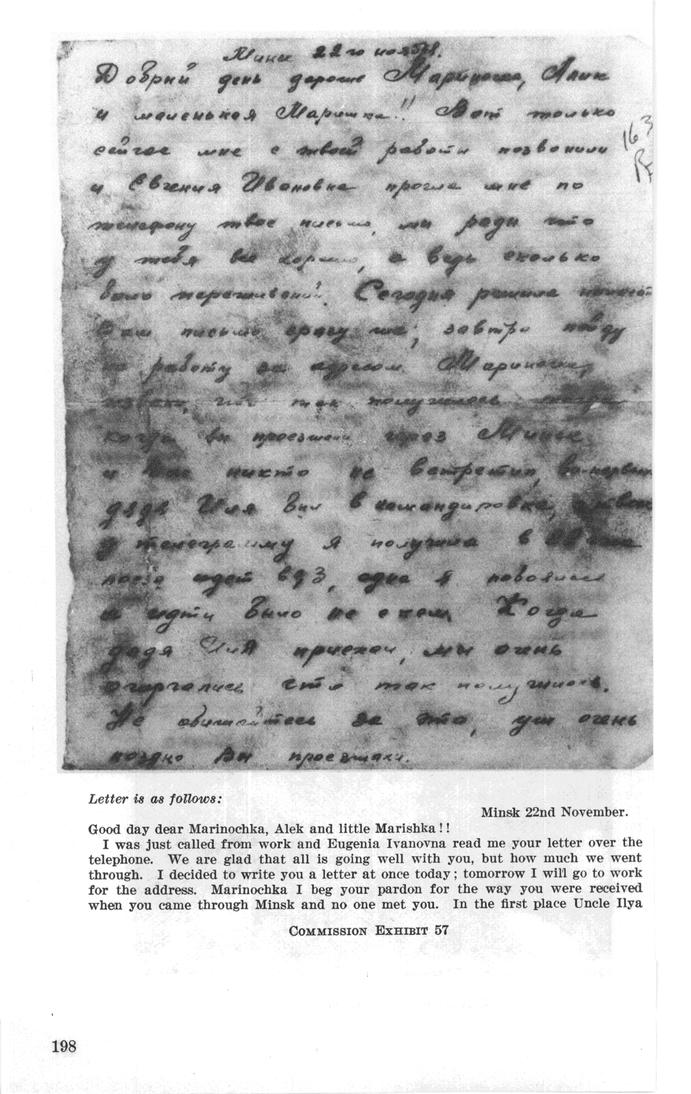 Минск 22го ноября.
Добрый день дорогие Мариночка, Алик
и маленькая Маришка!! Вот только
сейчас мне с твоей работы позвонили
и Евгения Ивановна прочла мне по
телефону твое письмо, мы рады что
у тебя все хорошо, а ведь сколько
было переживаний. Сегодня решила
Вам письмо сразу же, завтра пойду
на работу за адресом. Мариночка,
что так получилось
когда вы проезжали через Минск
и Вас никто не встретил,
дядя Иля был в командировке,
телеграмму я получила в
поезд идет в 3, одна я побоялась
а идти было не с кем. Когда
дядя Иля приехал, мы очень
огорчались что так получилось.
Не обижайтесь за это, уж очень
поздно Вы проезжали.
163
Letter is as follows:
Minsk 22nd November.
Good day dear Marinochka, Alek and little Marishka!!
I was just called from work and Eugenia Ivanovna read me your letter over the
telephone. We are glad that all is going well with you, but how much we went
through. I decided to write you a letter at once today; tomorrow I will go to work
for the address. Marinochka I beg your pardon for the way you were received
when you came through Minsk and no one met you. In the first place Uncle Ilya
COMMISSION EXHIBIT 57
198